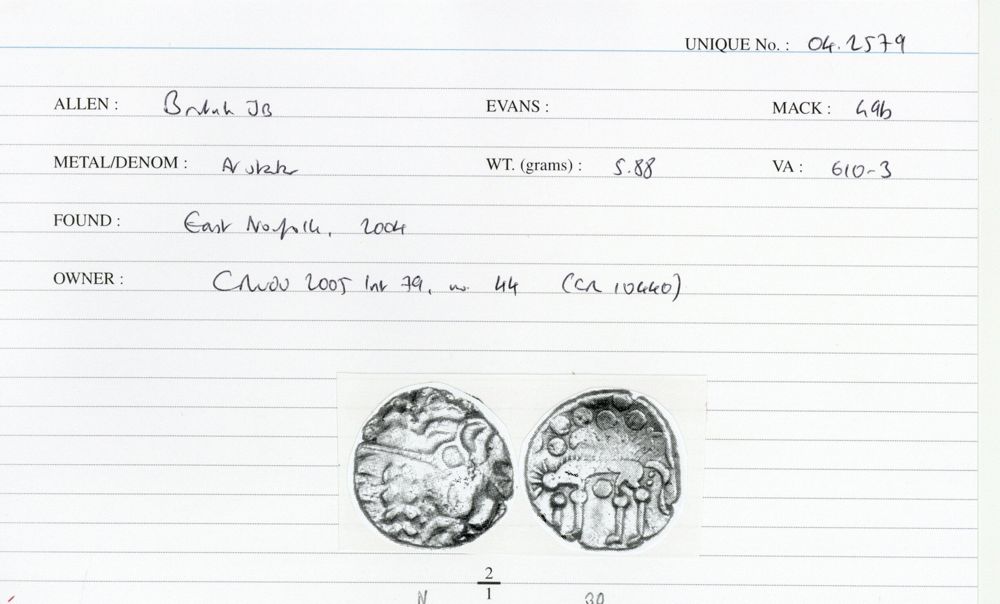 UNIQUE No. : 04.2579
ALLEN : British JB EVANS : MACK : 49b
METAL/DENOM : AV stater WT. (grams) : 5.88 VA : 610-3
FOUND : East Norfolk, 2004
OWNER : CNOU 2005 Int 79, no. 44 (CR 10440)
2
1
N 30